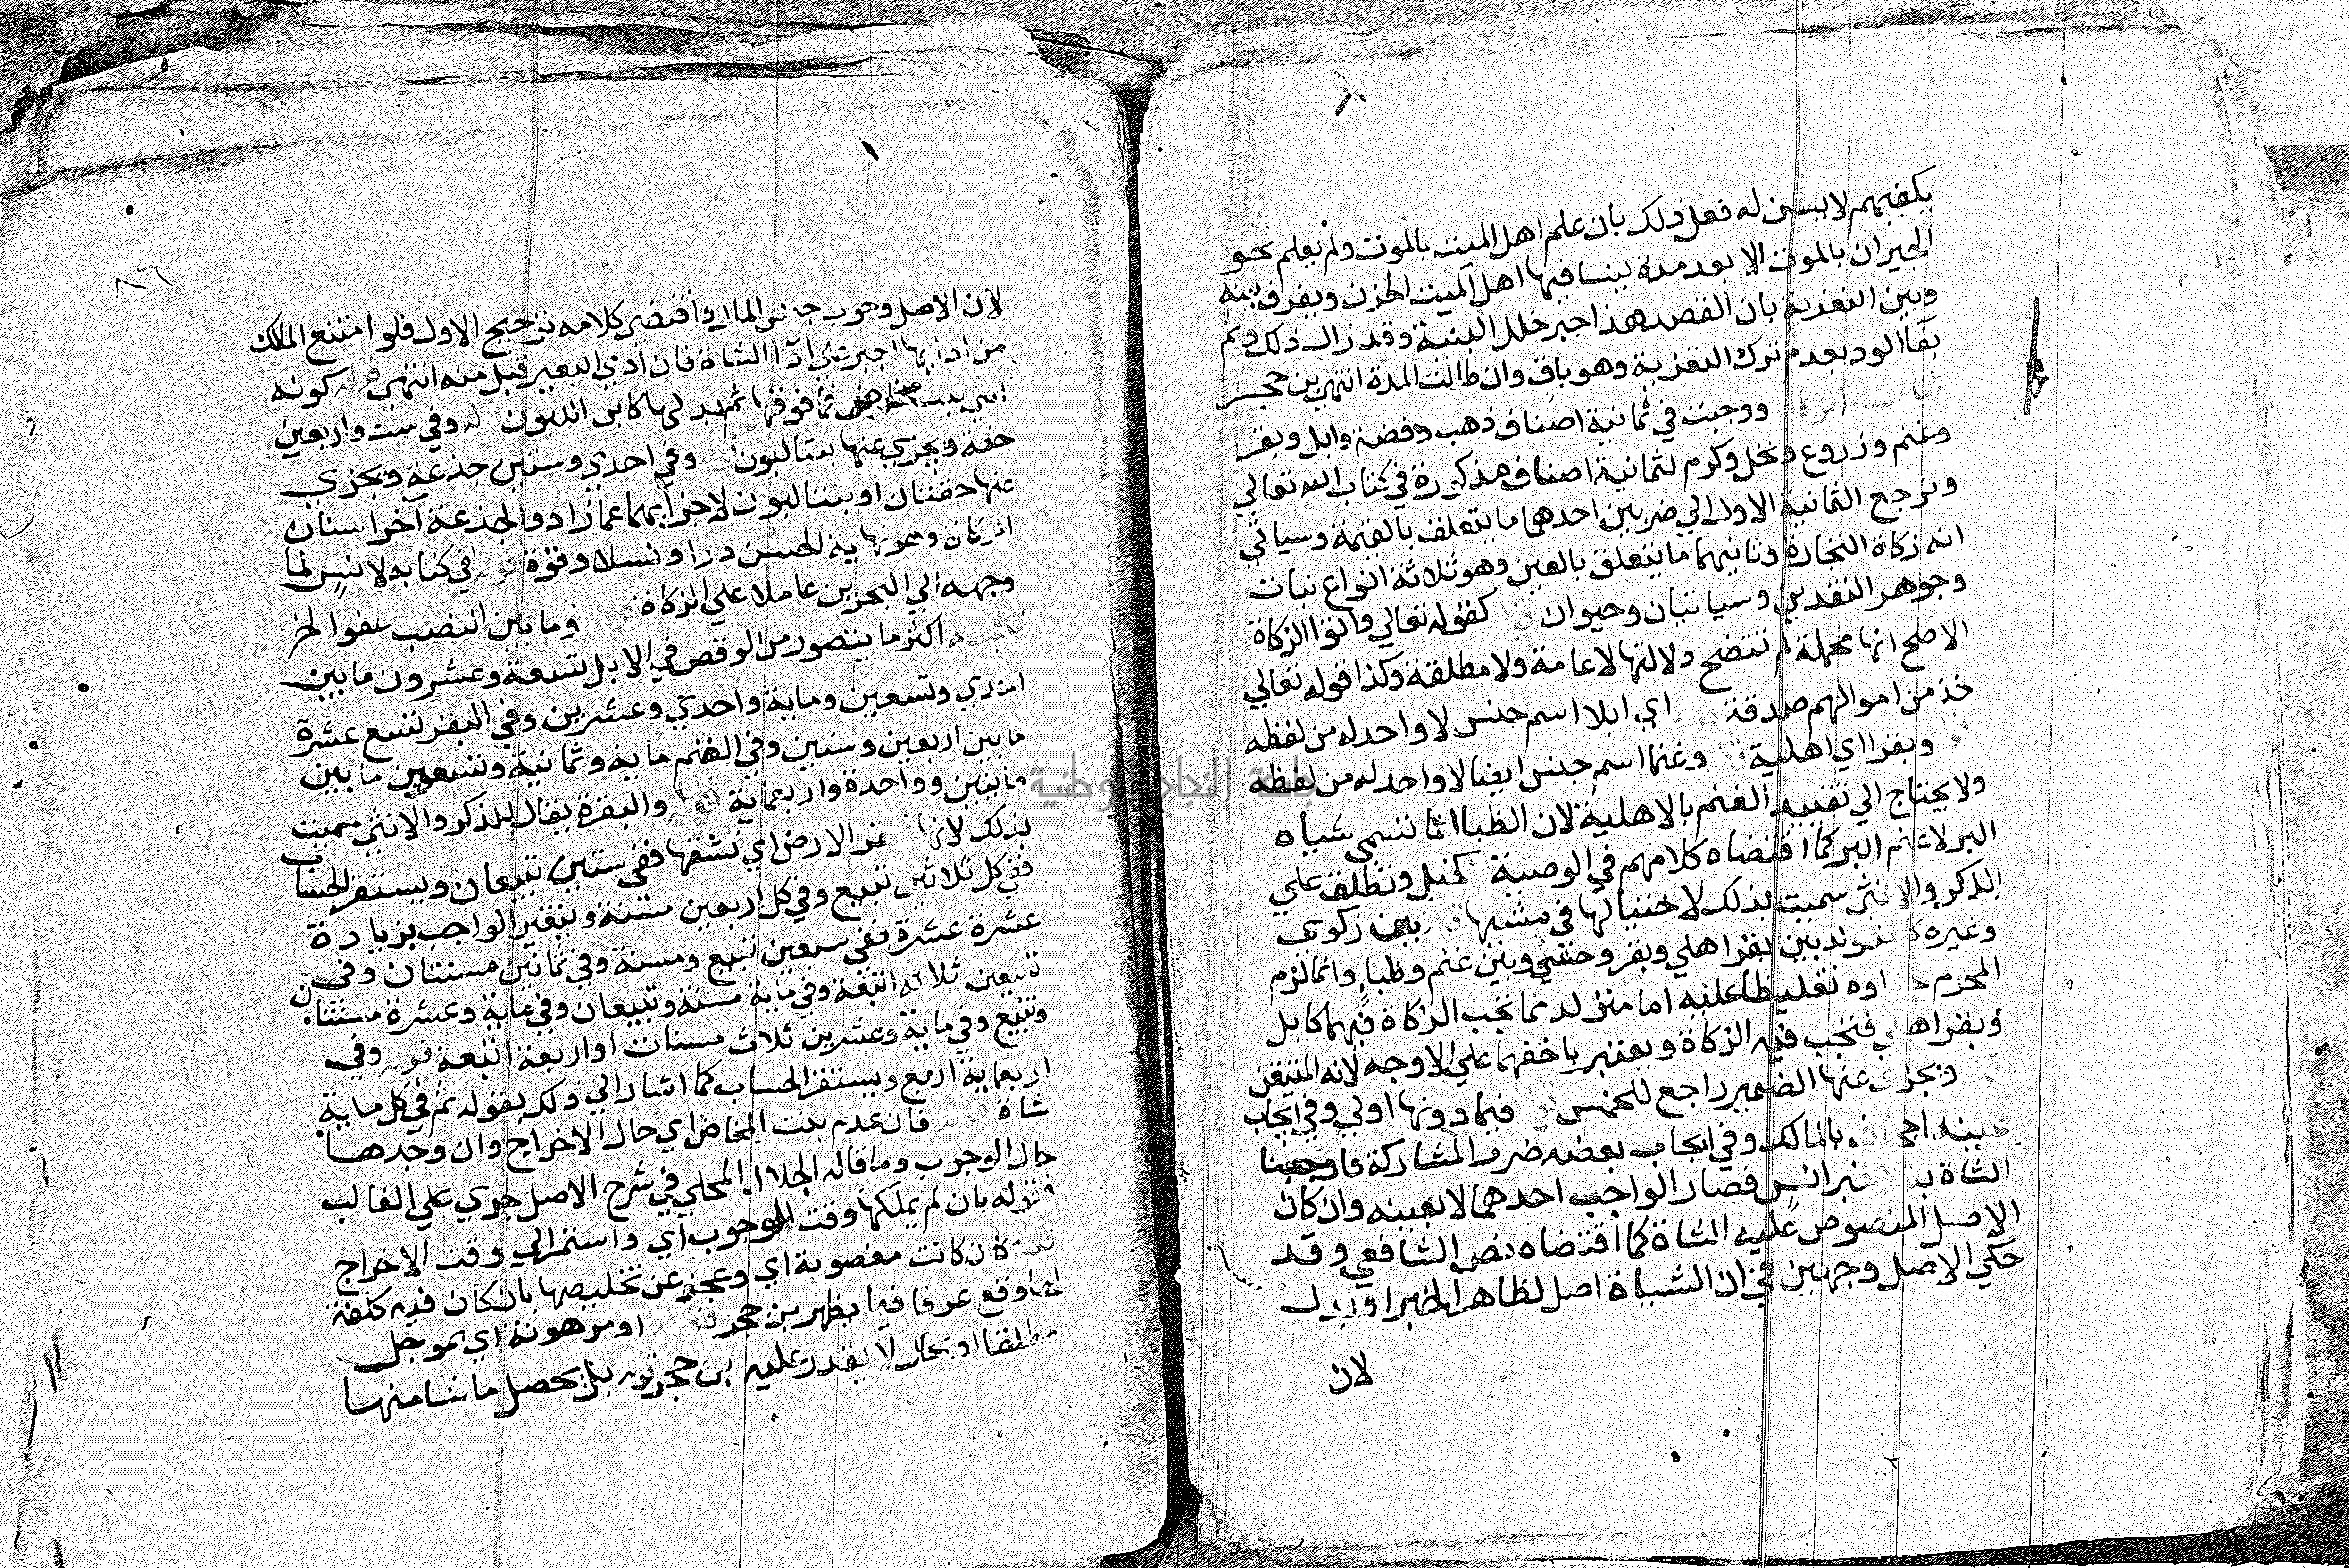 يكفيهم لا يسن له فعل ذلك بان علم اهل الميت بالموت ولم يعلم نحو
الجيران بالموت الا بعد مدة ينسا فيها اهل الميت الحزن ويفرق بينه
وبين التعزية بان القصد هذا جبر خلل البنية وقد زال ذلك وثم
بقا الود بعدم ترك التعزية وهو باق وان طالت المدة انتهى بن حجر
كتاب الزكا ووجبت في ثمانية اصناف ذهب وفضة وابل وبقر
وغنم وزروع ونخل وكرم لثمانية اصناف مذكورة في كتاب الله تعالي
وترجع الثمانية الاول الي ضربين احدهما ما يتعلق بالقيمة وسياتي
انه زكاة التجارة وثانيهما ما يتعلق بالعين وهو ثلاثة انواع نبات
وجوهر النقدين وسياتيان وحيوان قوله كقوله تعالي واتوا الزكاة
الاصح انها مجملة لم تتضح دلالتها لا عامة ولا مطلقة وكذا قوله تعالي
خذ من اموالهم صدقة قوله اي ابلا اسم جنس لا واحد له من لفظه
قوله وبقرا اي اهلية قوله وغنما اسم جنس ايضا لا واحد له من لفظه
ولا يحتاج الي تقييد الغنم بالاهلية لان الظبا انما تسمى شياه
البر لا غنم البر كما اقتضاه كلامهم في الوصية كخيل وتطلق علي
الذكر والانثى سميت بذلك لاختيالها في مشيها قوله بين زكوي
وغيره كالمتولد بين بقر اهلي وبقر وحشي وبين غنم وظباء وانما لزم
المحرم جزاوه تغليظا عليه اما متولد مما تجب الزكاة فيهما كابل
وبقر اهلي فتجب فيه الزكاة ويعتبر باخفهما علي الاوجه لانه المتيقن
قوله ويجزى عنها الضمير راجع للخمس قوله فيما دونها اولي وفي ايجاب
عينه اجحاف بالمالك وفي ايجاب بعضه ضرر المشاركة فاوجبنا
الشاة بدلا خبر انس فصار الواجب احدهما لا بعينه وان كان
الاصل المنصوص عليه الشاة كما اقتضاه نص الشافعي وقد
حكي الاصل وجهين في ان الشياة اصل لظاهر الخبر او بدل
لان
٨٦
لان الاصل وجوب جنس المال واقتضى كلامه ترجيح الاول فلو امتنع المالك
من ادايها اجبر علي ادا الشاة فان ادي البعير قبل منه انتهى قوله كونه
انثي بنت مخاض فما فوقها ثم بدلها كابن اللبون قوله وفي ست واربعين
حقة ويجزي عنها بنتا لبون قوله وفي احدي وستين جذعة ويجزي
عنها حقتان او بنتا لبون لاجزايهما عما زاد والجذعة آخر اسنان
الزكاة وهو نهاية الحسن درا ونسلا وقوة قوله في كتابه لانس لما
وجهه الي البحرين عاملا علي الزكاة قوله وما بين النصب عفوا الخ
تنبيه اكثر ما يتصور من الوقص في الابل تسعة وعشرون ما بين
احدي وتسعين وماية واحدي وعشرين وفي البقر تسع عشرة
ما بين اربعين وستين وفي الغنم ماية وثمانية وتسعين ما بين
مايتين وواحدة واربعماية قوله والبقرة يقال للذكر والانثي سميت
بذلك لانها تبقر الارض اي تشقها ففي ستين تبيعان ويستقر الحساب
ففي كل ثلاثين تبيع وفي كل اربعين مسنة ويتغير الواجب بزيادة
عشرة عشرة ففي سبعين تبيع ومسنة وفي ثمانين مسنتان وفي
تسعين ثلاثة اتبعة وفي ماية مسنة وتبيعان وفي ماية وعشرة مسنتان
وتبيع وفي ماية وعشرين ثلاث مسنات او اربعة اتبعة قوله وفي
اربعماية اربع ويستقر الحساب كما اشار الي ذلك بقوله ثم في كل ماية
شاة قوله فان عدم بنت المخاض اي حال الاخراج وان وجدها
حال الوجوب وما قاله الجلال المحلي في شرح الاصل جري علي الغالب
قوله بان لم يملكها وقت الوجوب اي واستمر الي وقت الاخراج
قوله كان كانت مغصوبة اي وعجز عن تخليصها بان كان فيه كلفة
لها وقع عرفا فيما يظهر بن حجر قوله او مرهونة اي بموجل
مطلقا او بحال لا يقدر عليه بن حجر قوله بل يحصل ما شا منها